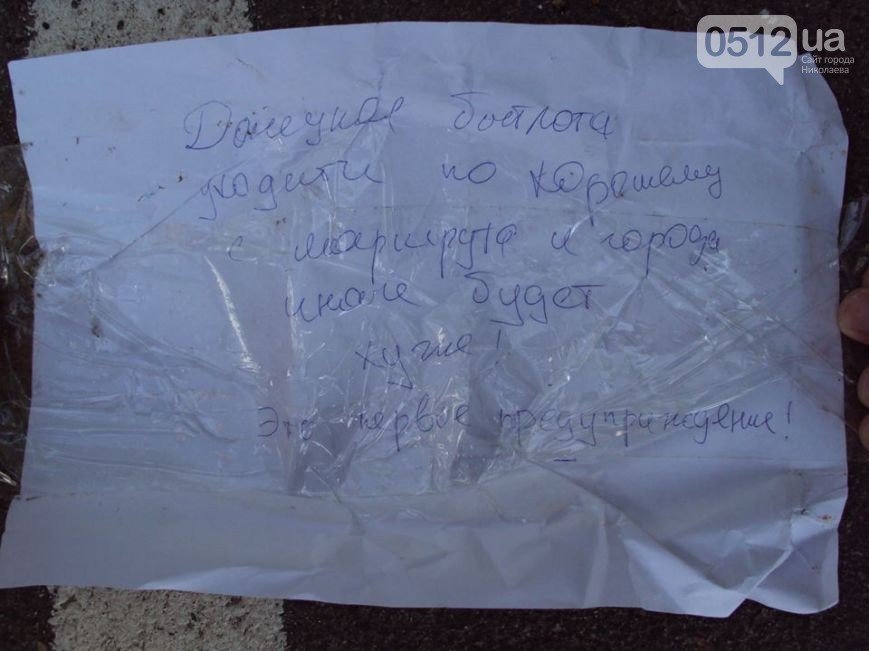 0512 ua
Сайт города
Николаева
Донецкая ботлота
уходити по хорошему
с маршрута и города
иначе будет
хуже!
Это первое предуприждение!